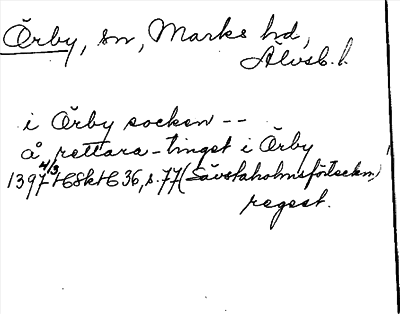 Örby, sn, Marks hd,
Älvsb. l.
i Örby socken --
å rettara-tingst i Örby
1397 4/3 HSH 36, s. 77 (Sävstaholmsförteckn.)
regest.